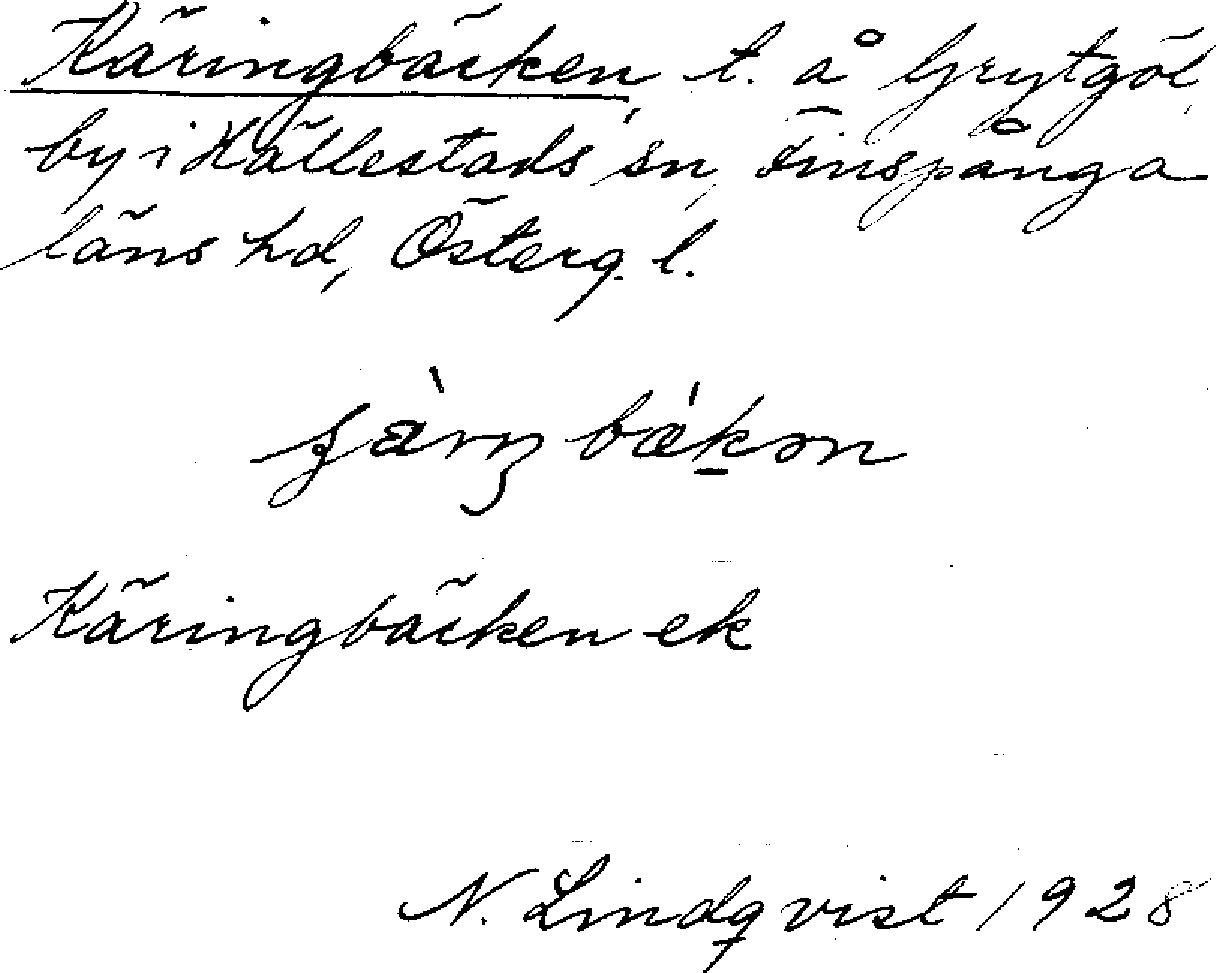 Käringbäcken, t. å Grytgöl,
by i Hällestads sn, Finspånga
läns hd, Österg. l.
Käringbäcken ek
N. Lindqvist 1928